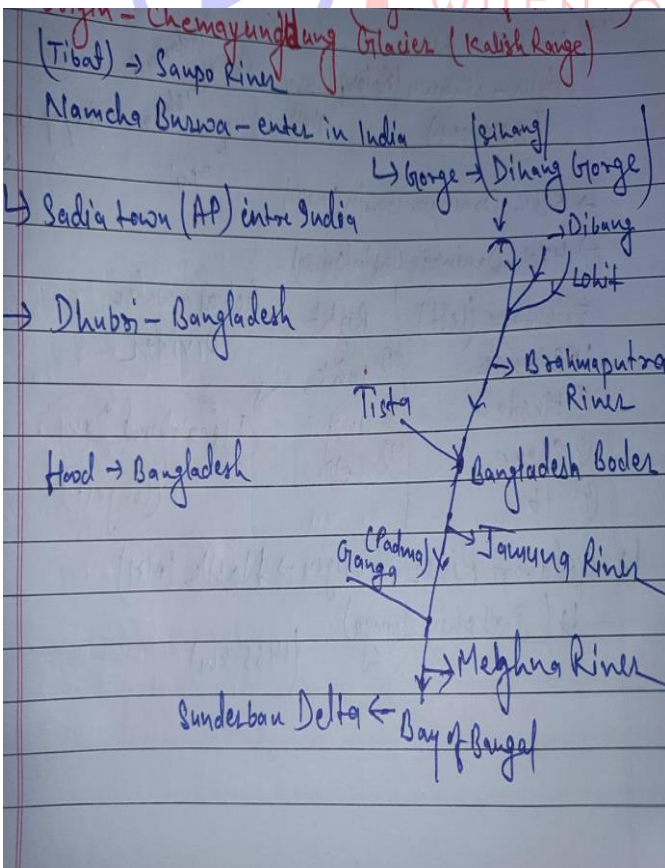 Origin - Chemayungdung Glacier (Kalish Range)
(Tibat) → Sanpo River
Namcha Burwa - enter in India
(Sihang/
↳ Gorge → Dihang Gorge)
↳ Sadia town (AP) intre India
→ Dibang
Lohit
→ Dhubri - Bangladesh
→ Brahmaputra
River
Tista
Bangladesh Boder
→ Bangladesh
(Padma)
Ganga
→ Jamuna River
→ Meghna River
Sunderban Delta ← Bay of Bangal